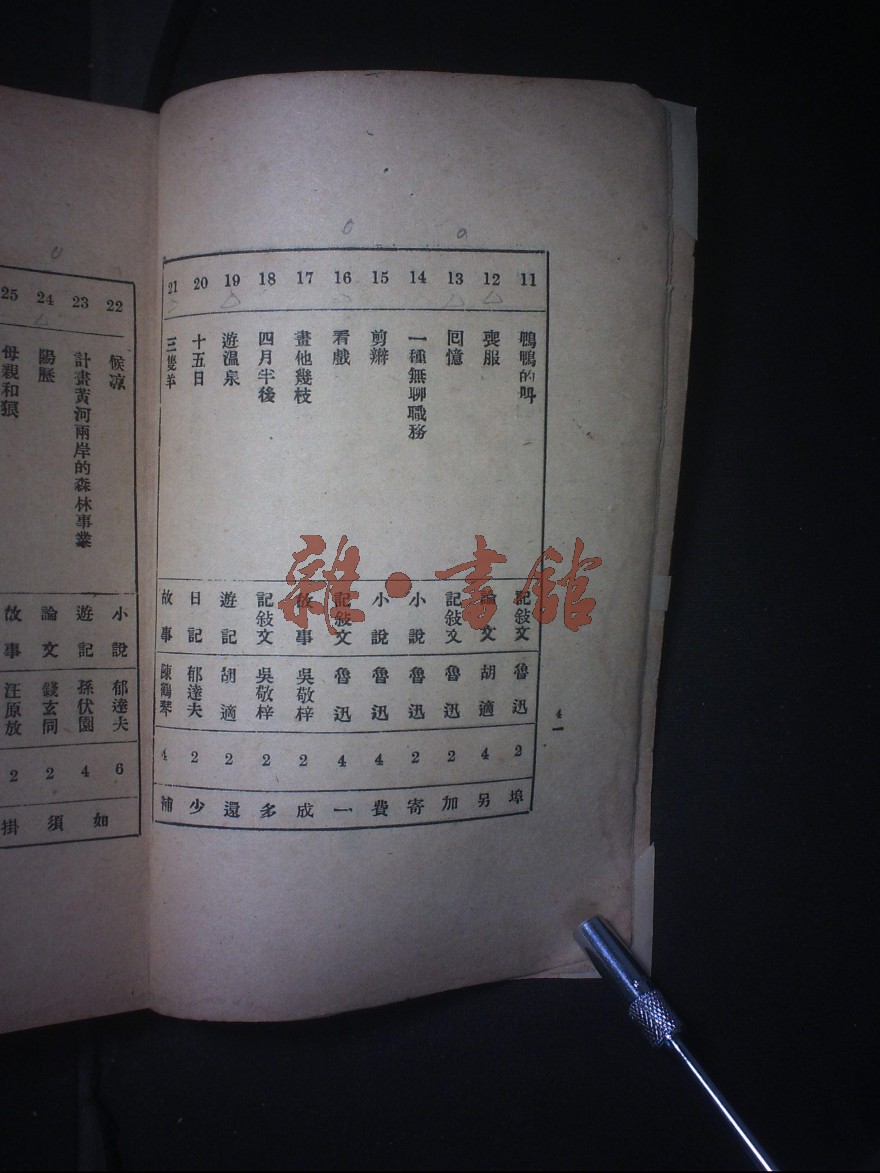 11 鴨鴨的叫 記敍文 魯迅 2 埠
12 喪服 論文 胡適 4 另
13 囘憶 記敍文 魯迅 2 加
14 一種無聊職務 小說 魯迅 2 寄
15 剪辮 小說 魯迅 4 費
16 看戲 記敍文 魯迅 4 一
17 畫他幾枝 故事 吳敬梓 2 成
18 四月半後 記敍文 吳敬梓 2 多
19 遊温泉 遊記 胡適 2 還
20 十五日 日記 郁達夫 2 少
21 三隻羊 故事 陳鶴琴 4 補
4 一
22 候凉 小說 郁達夫 6
23 計畫黃河兩岸的森林事業 遊記 孫伏園 4 如
24 陽歷 論文 錢玄同 2 須
25 母親和狼 故事 汪原放 2 掛
雜·書館